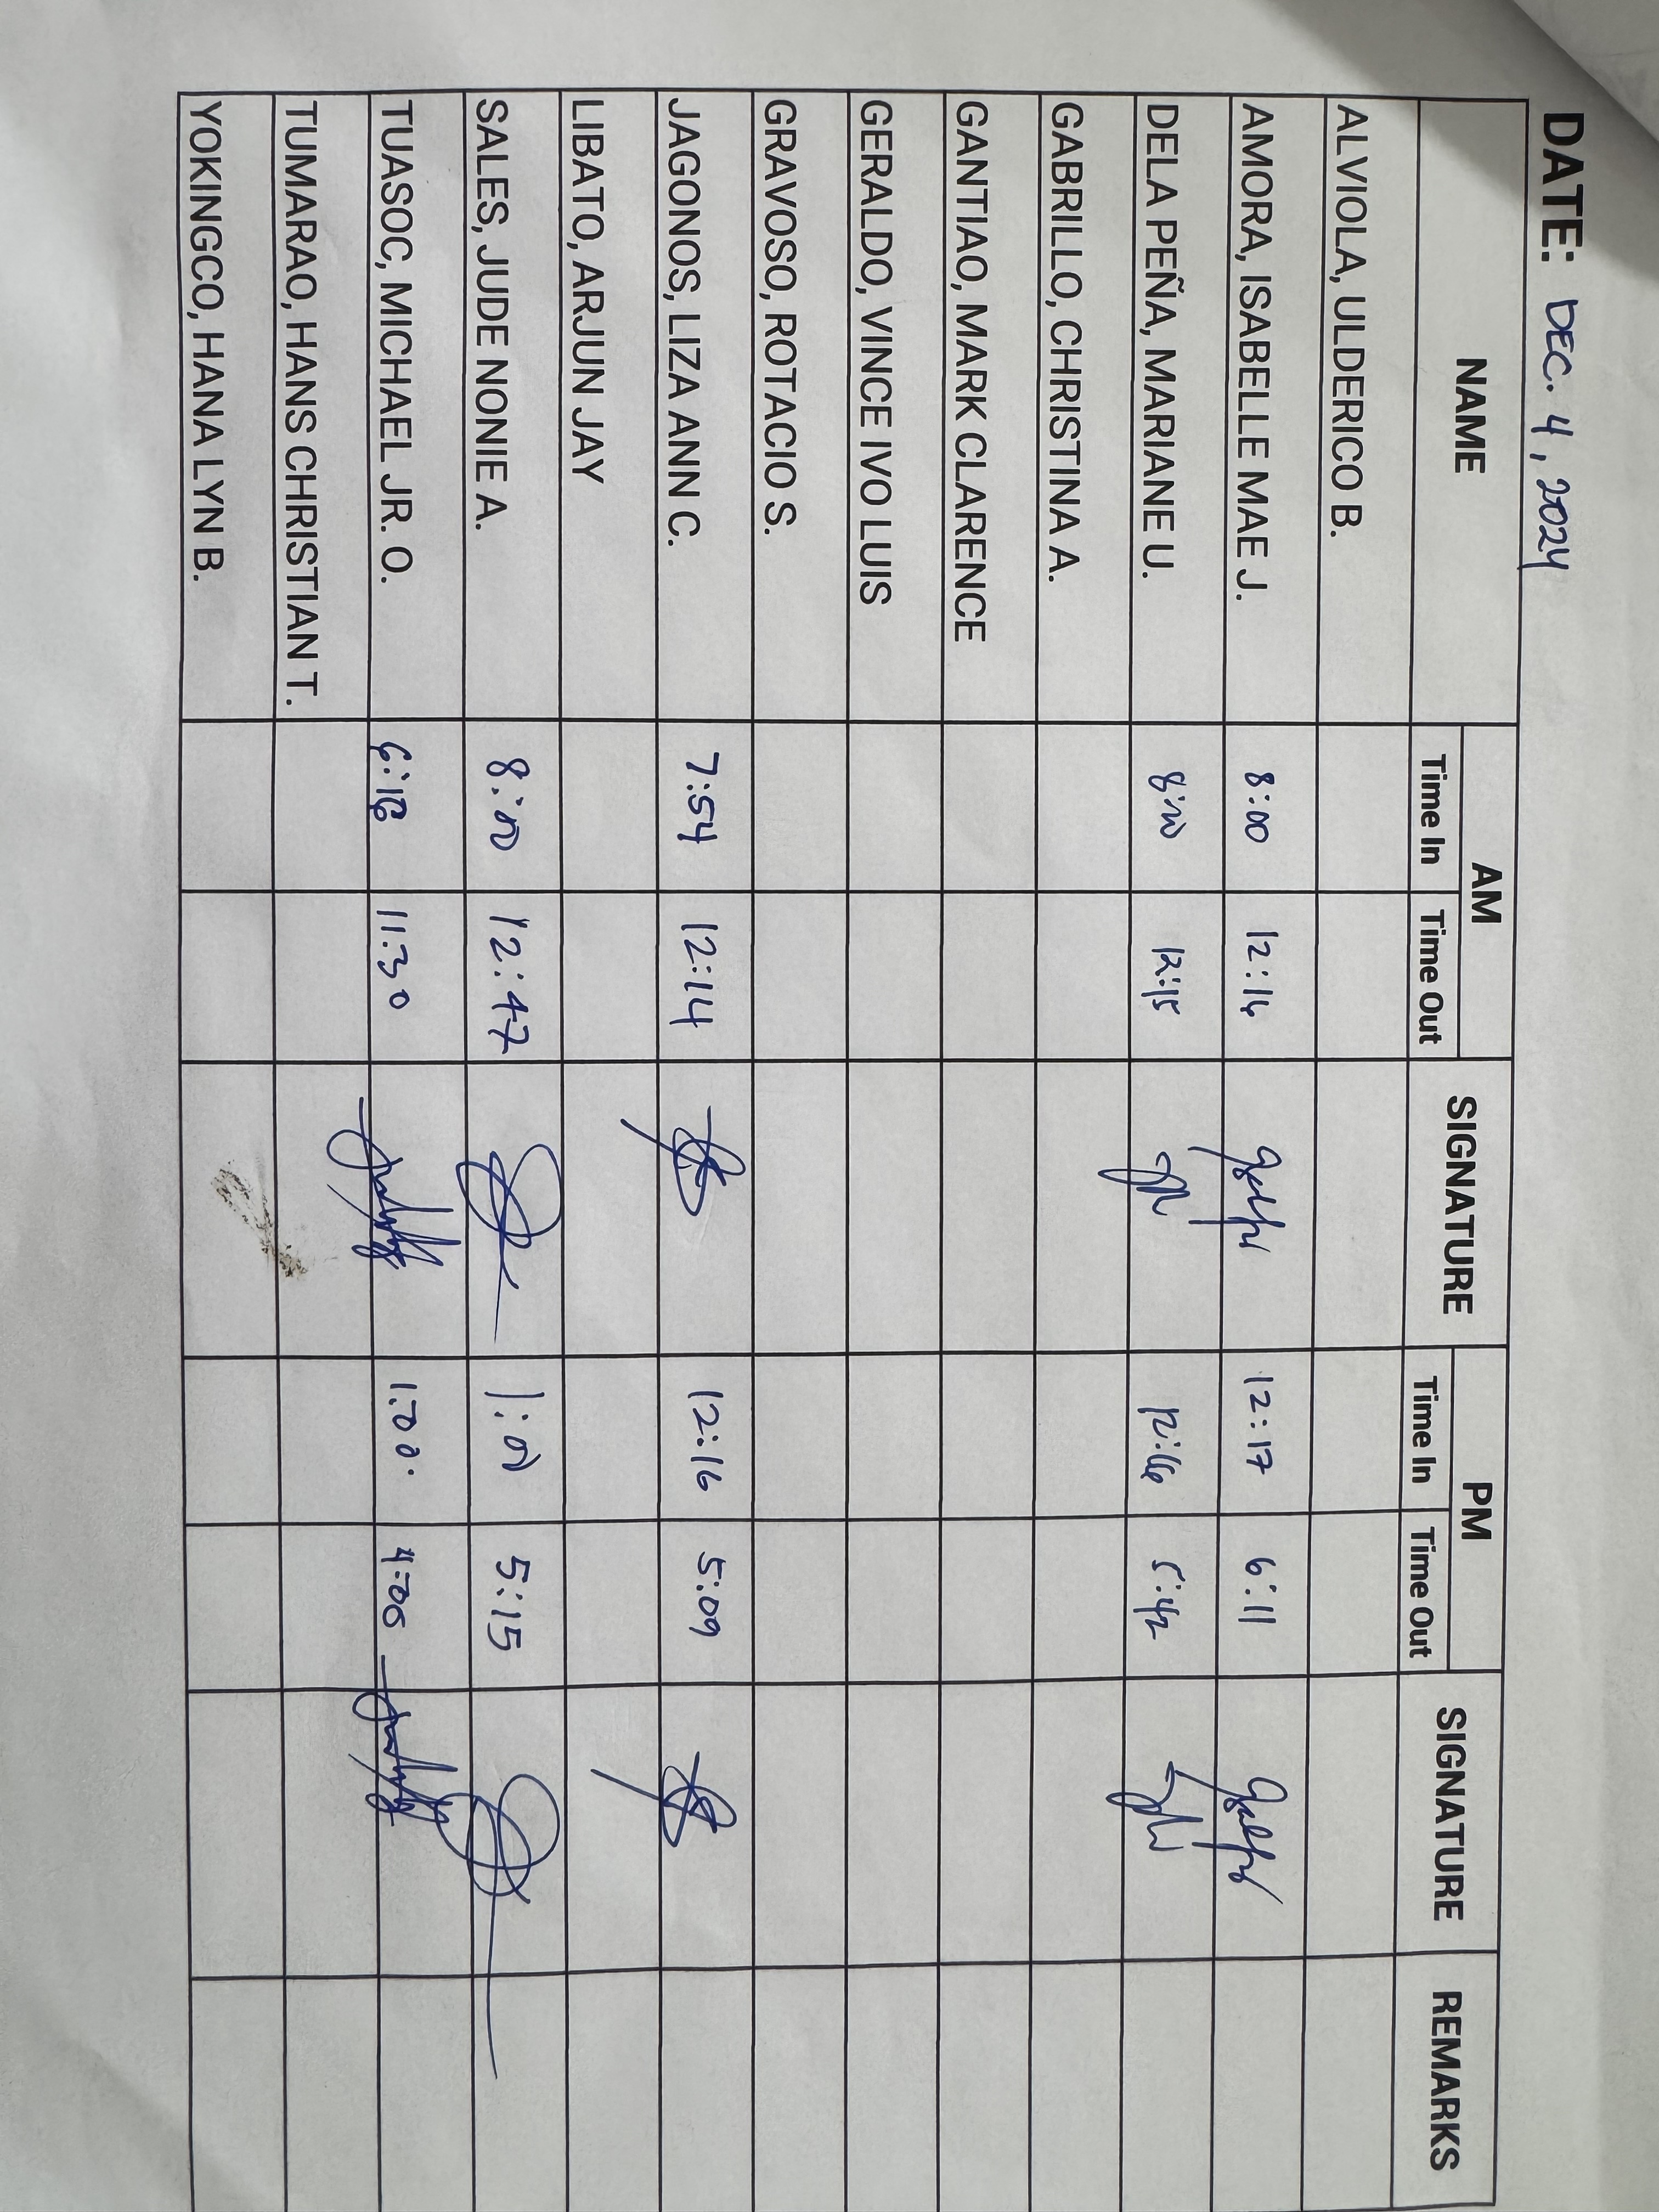 DATE: DEC. 4, 2024
NAME AM SIGNATURE PM SIGNATURE REMARKS
Time In Time Out Time In Time Out
ALVIOLA, ULDERICO B.
AMORA, ISABELLE MAE J. 8:00 12:16 12:17 6:11
DELA PEÑA, MARIANE U. 12:15 12:16 5:42
GABRILLO, CHRISTINA A.
GANTIAO, MARK CLARENCE
GERALDO, VINCE IVO LUIS
GRAVOSO, ROTACIO S.
JAGONOS, LIZA ANN C. 7:54 12:14 12:16 5:09
LIBATO, ARJUN JAY
SALES, JUDE NONIE A. 8:00 12:47 1:00 5:15
TUASOC, MICHAEL JR. O. 11:30 1:00 4:00
TUMARAO, HANS CHRISTIAN T.
YOKINGCO, HANA LYN B.